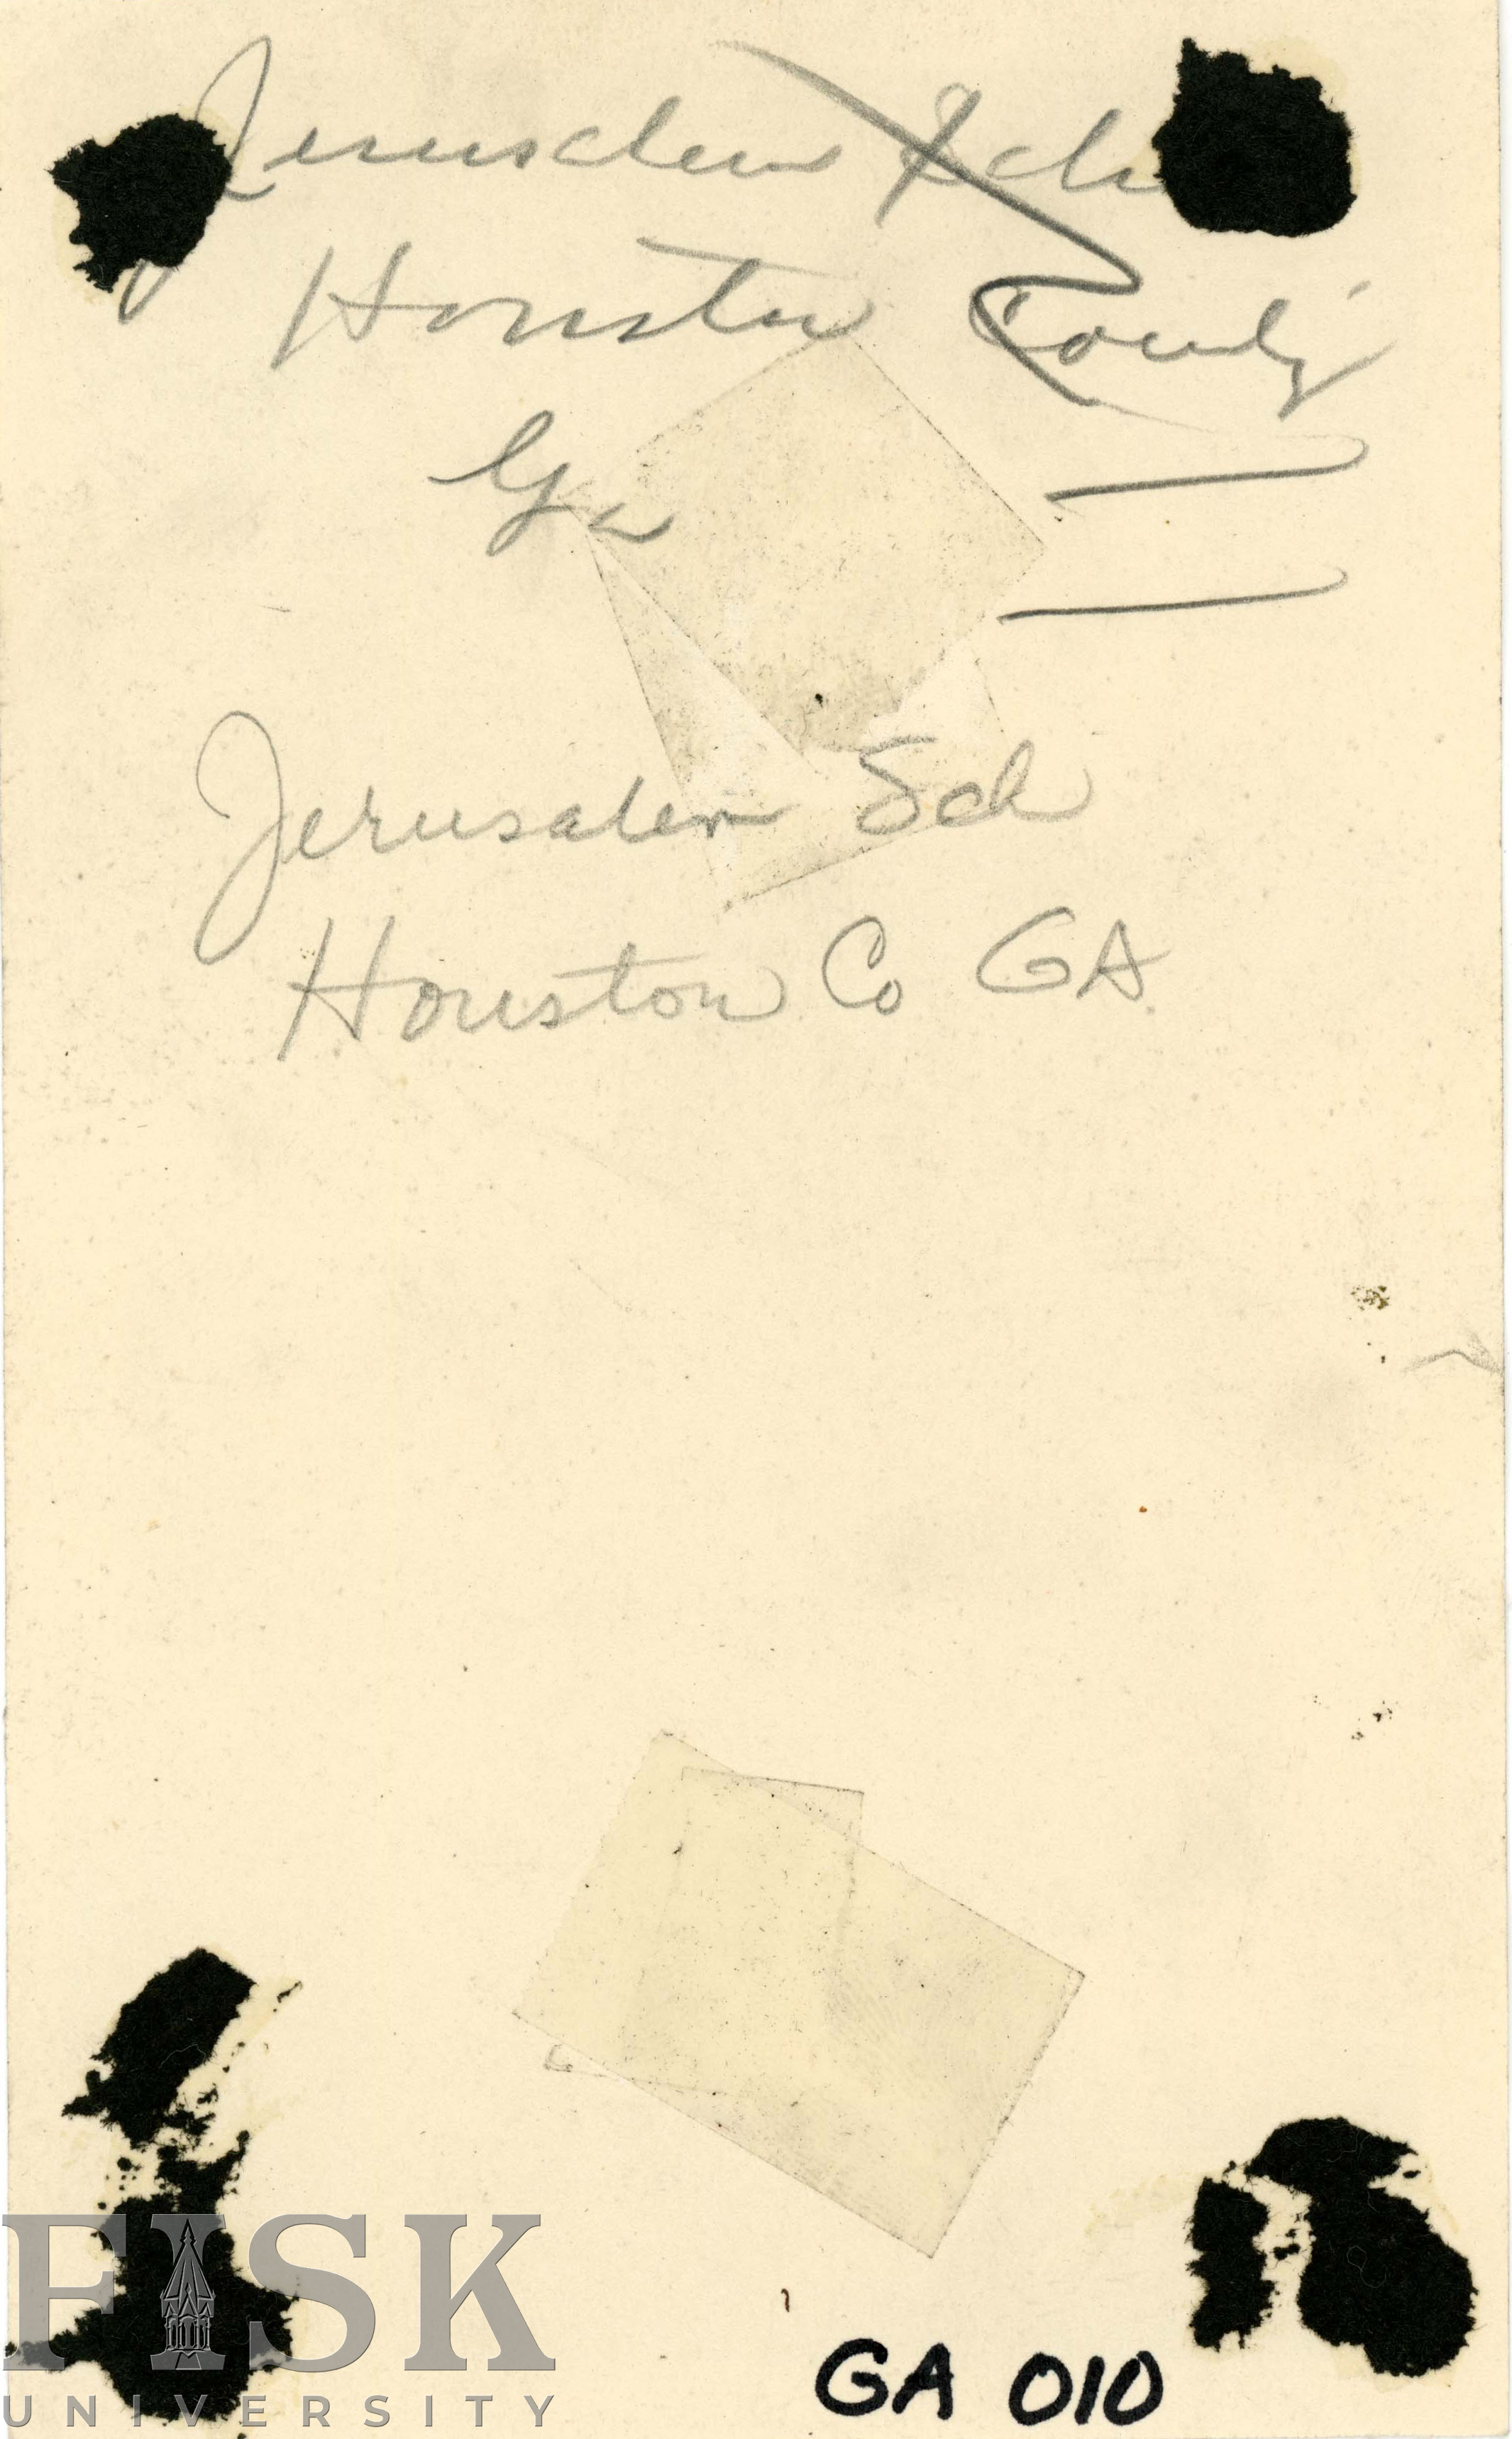 Jerusalem Sch
Houston County
Ga
Jerusalem Sch
Houston Co GA.
FISK
UNIVERSITY
GA 010